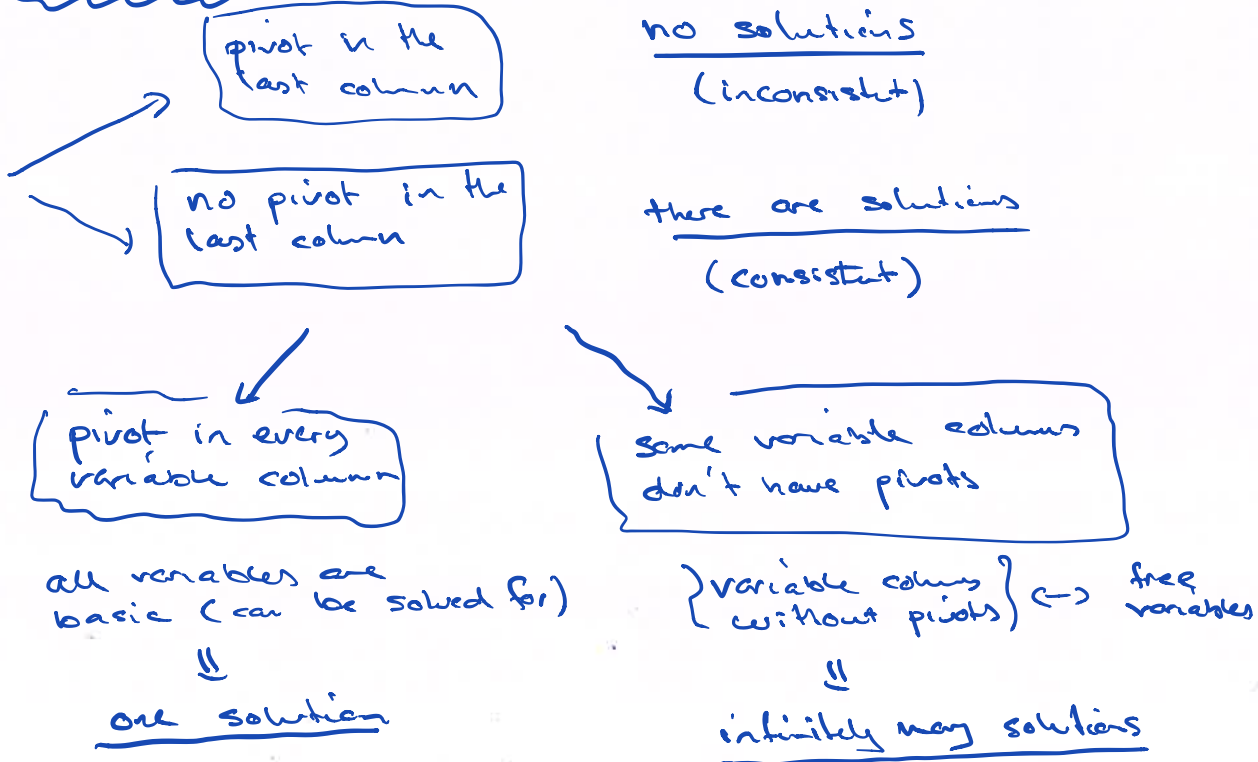 pivot in the
last column
no solutions
(inconsistent)
no pivot in the
last column
there are solutions
(consistent)
pivot in every
variable column
some variable columns
don't have pivots
all variables are
basic (can be solved for)
⇓
one solution
{variable columns
without pivots} <-> free
variables
⇓
infinitely many solutions